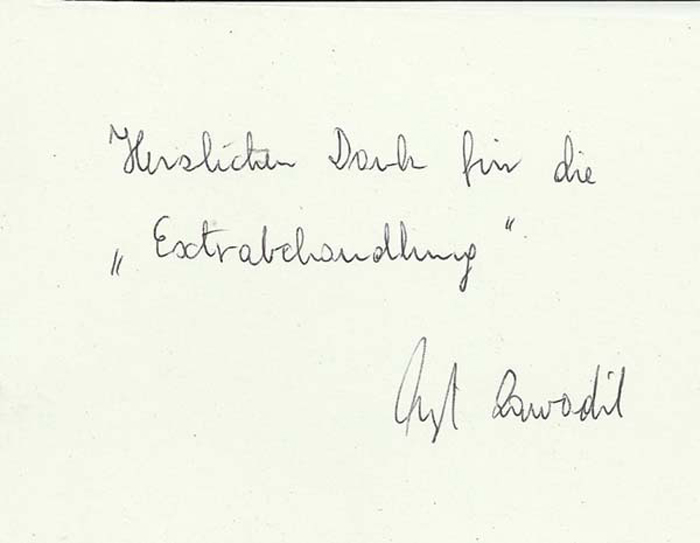 Herzlichen Dank für die
„Extrabehandlung"
Zawodil